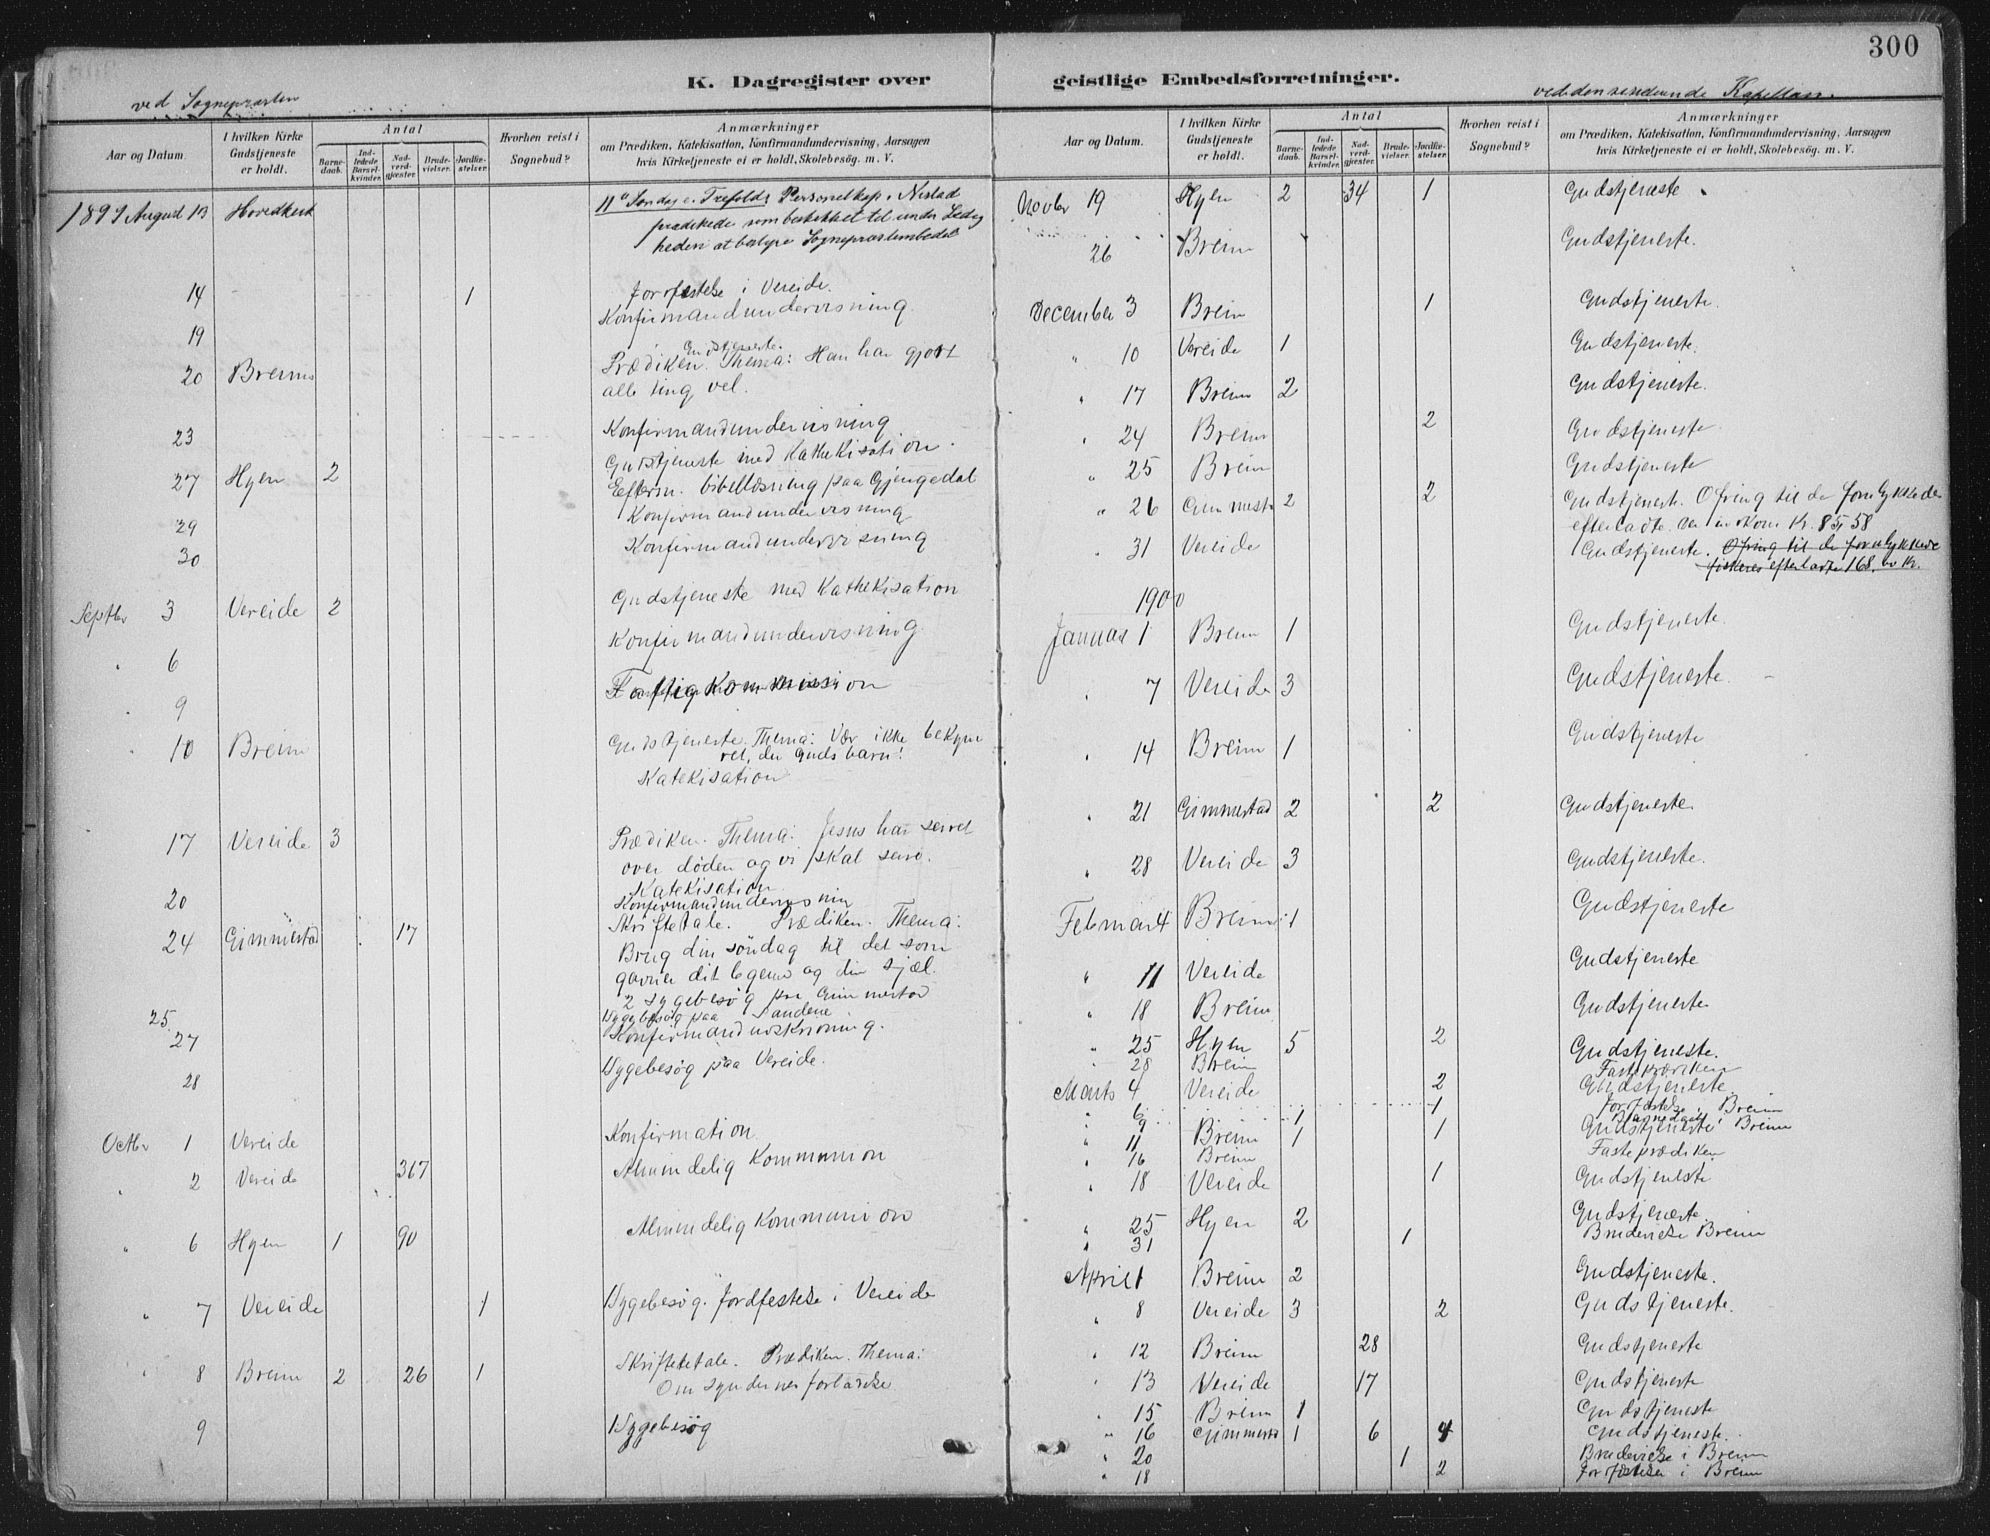 300
K. Dagregister over
ved Sognepræsten
Aar og Datum.
I hvilken Kirke Gudstjeneste er holdt.
Antal
Barnedaab.
Indledede Barselkvinder.
Nadverdgjæster.
Brudevielser.
Jordfæstelser.
Hvorhen reist i Sognebud?
Anmærkninger
om Prædiken, Katekisation, Konfirmandundervisning, Aarsagen
hvis Kirketjeneste ei er holdt, Skolebesøg. m. V.
1899 August 13 Hovedkirk 11te Søndag e. Trefold: Personelkap. Nistad
prædikede som beskikket til under Ledig
heden at bestyre Sognepræstembedet
14 1 Jordfestelse i Vereide.
19 Konfirmandundervisning.
Gudstjeneste.
20 Breim Prædiken. Thema: Han har gjort
alle ting vel.
23 Konfirmandundervisning.
27 Hyen 2 Gudstjeneste med Kathekisation.
Efterm. bibellæsning paa Gjengedal
29 Konfirmandundervisning
30 Konfirmandundervisning
Septbr 3 Vereide 2 Gudstjeneste med Kathekisation
" 6 Konfirmandundervisning.
" 9 Fattigkommission
" 10 Breim Gudstjeneste. Thema: Vær ikke bekym
ret, du Guds barn!
Katekisation
17 Vereide 3 Prædiken. Thema: Jesus har seiret
over døden og vi skal seire.
Katekisation
20 Konfirmandundervisning
24 Gimmestad 17 Skriftetale. Prædiken. Thema:
Brug din søndag til det som
gavner dit legeme og din sjæl.
2 sygebesøg paa Gimmestad
25 Sygebesøg paa Sandene
27 Konfirmandudskrivning.
28 Sygebesøg paa Vereide.
Octbr 1 Vereide Konfirmation
" 2 Vereide 367 Almindelig Kommunion
" 6 Hyen 1 90 Almindelig Kommunion
" 7 Vereide 1 Sygebesøg. Jordfestelse i Vereide
" 8 Breim 2 26 1 Skriftetale. Prædiken. Thema:
Om syndernes forladelse
9 Sygebesøg
geistlige Embedsforretninger.
ved den residerende Kapellan.
Aar og Datum.
I hvilken Kirke Gudstjeneste er holdt.
Antal
Barnedaab.
Indledede Barselkvinder.
Nadverdgjæster.
Brudevielser.
Jordfæstelser.
Hvorhen reist i Sognebud?
Anmærkninger
om Prædiken, Katekisation, Konfirmandundervisning, Aarsagen
hvis Kirketjeneste ei er holdt, Skolebesøg. m. V.
Novbr 19 Hyen 2 34 1 Gudstjeneste.
26 Breim Gudstjeneste.
December 3 Breim 1 Gudstjeneste.
" 10 Vereide 1 Gudstjeneste.
" 17 Breim 2 Gudstjeneste.
" 24 Breim 2 Gudstjeneste
" 25 Breim Gudstjeneste
" 26 Gimmestad 2 2 Gudstjeneste. Ofring til de forulykkedes
efterladte. indkom Kr. 85,58
" 31 Vereide Gudstjeneste. Ofring til de forulykkede
fiskeres efterladte 168, Kr.
1900
Januar 1 Breim 1 Gudstjeneste.
" 7 Vereide 3 Gudstjeneste.
" 14 Breim 1 Gudstjeneste
" 21 Gimmestad 2 2 Gudstjeneste.
" 28 Vereide 3 Gudstjeneste.
Februar 4 Breim 1 Gudstjeneste
" 11 Vereide Gudstjeneste
" 18 Breim Gudstjeneste
" 25 Hyen 5 2 Gudstjeneste.
" 28 Breim Fasteprædiken
Marts 4 Vereide 2 Gudstjeneste.
" 6 1 Jordfæstelse i Breim
" 9 1 Barnedaab i Breim
" 11 Breim 1 1 Gudstjeneste
" 16 Breim Fasteprædiken
" 18 Vereide 1 Gudstjeneste
" 25 Hyen 2 Gudstjeneste.
" 31 1 Brudevielse Breim
April 1 Breim 2 Gudstjeneste.
" 8 Vereide 3 2 Gudstjeneste.
" 12 Breim 28 Gudstjeneste
" 13 Vereide 17 Gudstjeneste
" 15 Breim 1 Gudstjeneste
" 16 Gimmestad 1 6 4 Gudstjeneste.
" 20 1 Brudevielse i Breim
" 18 2 Jordfæstelser i Breim